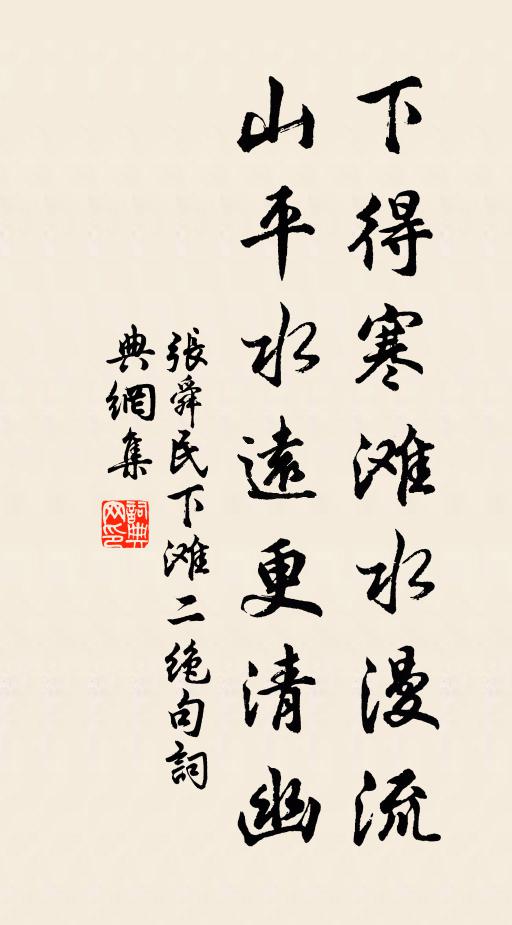 下得寒滩水漫流
山平水遠更清幽
張舜民下滩二绝句詞
典網集
詞典网印